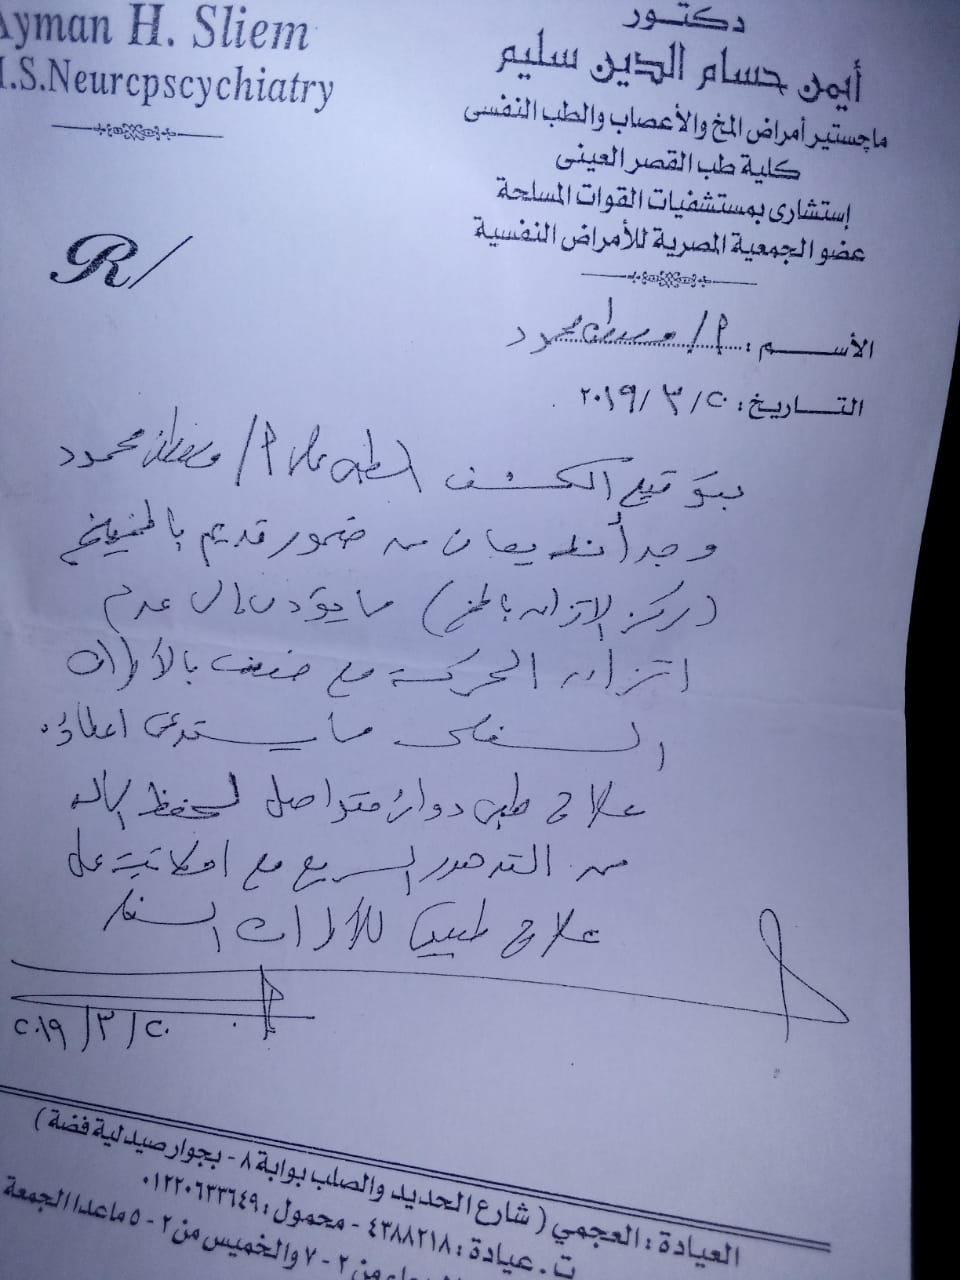 Ayman H. Sliem
M.S.Neurcpscychiatry
دكتور
أيمن حسام الدين سليم
ماجستير أمراض المخ والأعصاب والطب النفسى
كلية طب القصر العينى
إستشارى بمستشفيات القوات المسلحة
عضو الجمعية المصرية للأمراض النفسية
R/
الأسم : أ/ مصطفى محمود
التاريخ : ٢٠ / ٣ / ٢٠١٩
بتوقيع الكشف الطبى على أ/ مصطفى محمود
وجد أنه يعانى من ضمور قديم بالمخيخ
(مركز الاتزان بالمخ) مما يؤدى إلى عدم
اتزان الحركة مع ضعف بالأطراف
السفلى مما يستدعى اعطاؤه
علاج طبى دوائى متواصل لحفظ الحالة
من التدهور السريع مع امكانية عمل
علاج طبيعى للأطراف السفلى
٢٠ / ٣ / ٢٠١٩
العيادة : العجمي ( شارع الحديد والصلب بوابة ٨ - بجوار صيدلية فضة )
ت . عيادة : ٤٣٨٨٢١٨ - محمول : ٠١٢٢٠٦٣٣٦٤٩
من ٢ - ٧ والخميس من ٢ - ٥ ماعدا الجمعة